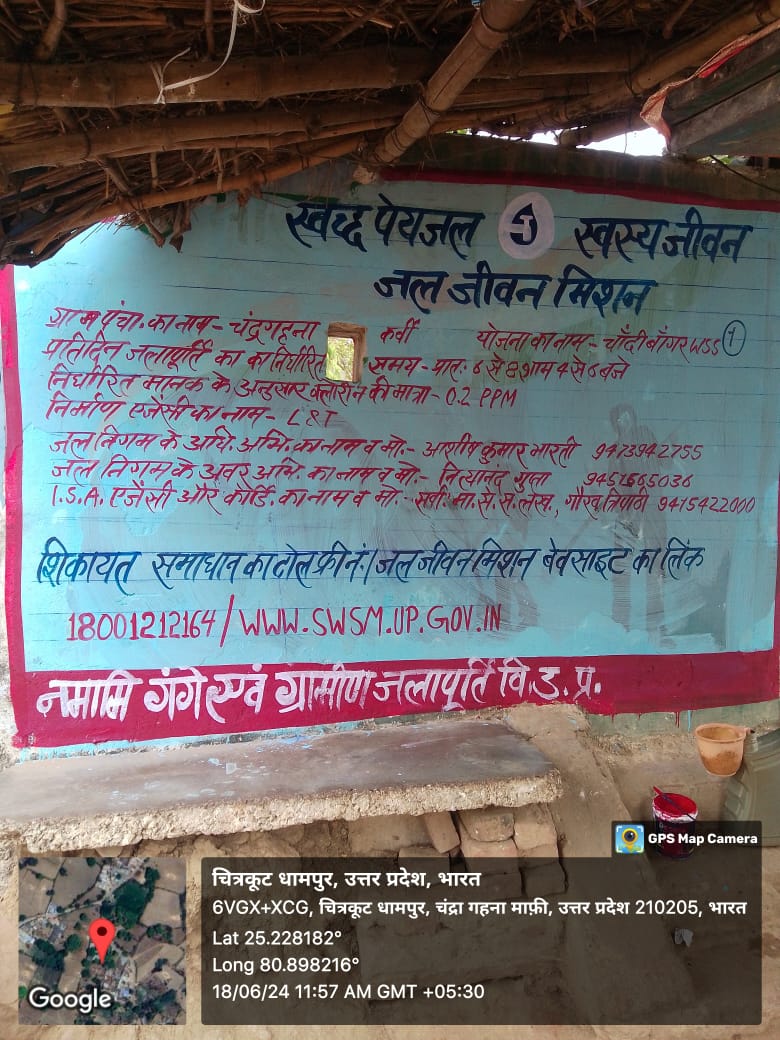 स्वच्छ पेयजल स्वस्थ जीवन
जल जीवन मिशन
ग्राम पंचा. का नाम - चंद्रगहना कर्वी योजना का नाम - चाँदी बाँगर WSS 1
प्रतिदिन जलापूर्ति का का निर्धारित समय - प्रात: 6 से 8 शाम 4 से 6 बजे
निर्धारित मानक के अनुसार क्लोरीन की मात्रा - 0.2 PPM
निर्माण एजेंसी का नाम - L&T
जल निगम के अधि. अभि. का नाम व मो. - आशीष कुमार भारती 9473942755
जल निगम के अवर अभि. का नाम व मो. - नित्यानंद गुप्ता
I.S.A. एजेंसी और कोर्डि. का नाम व मो - सर्वो. मा. से. स. लेख, गौरव त्रिपाठी 9415422000
शिकायत समाधान का टोल फ्री नं. / जल जीवन मिशन बेवसाइट का लिंक
18001212164 / WWW.SWSM.UP.GOV.IN
नमामि गंगे एवं ग्रामीण जलापूर्ति वि. उ. प्र.
GPS Map Camera
चित्रकूट धामपुर, उत्तर प्रदेश, भारत
6VGX+XCG, चित्रकूट धामपुर, चंद्रा गहना माफ़ी, उत्तर प्रदेश 210205, भारत
Lat 25.228182°
Long 80.898216°
18/06/24 11:57 AM GMT +05:30
Google